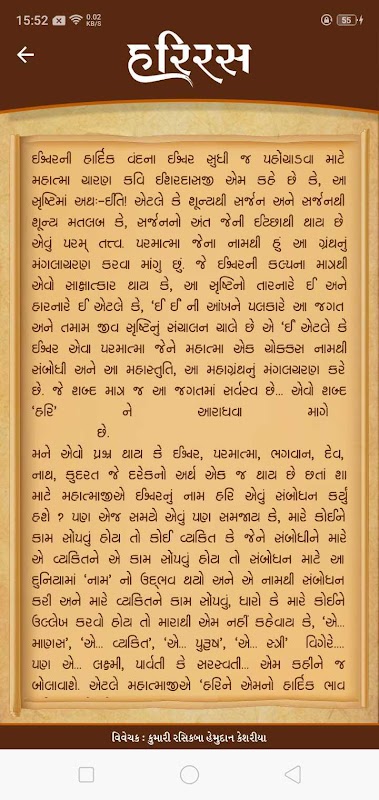 15:52
0.02
KB/S
55
હરિરસ
ઈશ્વરની હાર્દિક વંદના ઈશ્વર સુધી જ પહોચાડવા માટે
મહાત્મા ચારણ કવિ ઈશરદાસજી એમ કહે છે કે, આ
સૃષ્ટિમાં અથઃ-ઈતિ! એટલે કે શૂન્યથી સર્જન અને સર્જનથી
શૂન્ય મતલબ કે, સર્જનનો અંત જેની ઈચ્છાથી થાય છે
એવું પરમ્ તત્ત્વ. પરમાત્મા જેના નામથી હું આ ગ્રંથનું
મંગલાચરણ કરવા માંગુ છું. જે ઈશ્વરની કલ્પના માત્રથી
એવો સાક્ષાત્કાર થાય કે, આ સૃષ્ટિનો તારનારે ઈ અને
હારનારે ઈ એટલે કે, ‘ઈ ઈ ની આંખને પલકારે આ જગત
અને તમામ જીવ સૃષ્ટિનું સંચાલન ચાલે છે એ ‘ઈ એટલે કે
ઈશ્વર એવા પરમાત્મા જેને મહાત્મા એક ચોક્કસ નામથી
સંબોધી અને આ મહાસ્તુતિ, આ મહાગ્રંથનું મંગલચરણ કરે
છે. જે શબ્દ માત્ર જ આ જગતમાં સર્વસ્વ છે... એવો શબ્દ
‘હરિ’ ને આરાધવા માગે
છે.
મને એવો પ્રશ્ન થાય કે ઈશ્વર, પરમાત્મા, ભગવાન, દેવ,
નાથ, કુદરત જે દરેકનો અર્થ એક જ થાય છે છતાં શા
માટે મહાત્માજીએ ઈશ્વરનું નામ હરિ એવું સંબોધન કર્યું
હશે ? પણ એજ સમયે એવું પણ સમજાય કે, મારે કોઈને
કામ સોપવું હોય તો કોઈ વ્યકિત કે જેને સંબોધીને મારે
એ વ્યકિતને એ કામ સોંપવું હોય તો સંબોધન માટે આ
દુનિયામાં ‘નામ’ નો ઉદ્દભવ થયો અને એ નામથી સંબોધન
કરી અને મારે વ્યકિતને કામ સોપવું, ધારો કે મારે કોઈને
ઉલ્લેખ કરવો હોય તો મારાથી એમ નહીં કહેવાય કે, ‘એ...
માણસ’, ‘એ... વ્યકિત’, ‘એ... પુરૂષ’, ‘એ... સ્ત્રી’ વિગેરે....
પણ એ... લક્ષ્મી, પાર્વતી કે સરસ્વતી... એમ કહીને જ
બોલાવાશે. એટલે મહાત્માજીએ ‘હરિને એમનો હાર્દિક ભાવ
વિવેચક : કુમારી રસિકબા હેમુદાન કેશરીયા